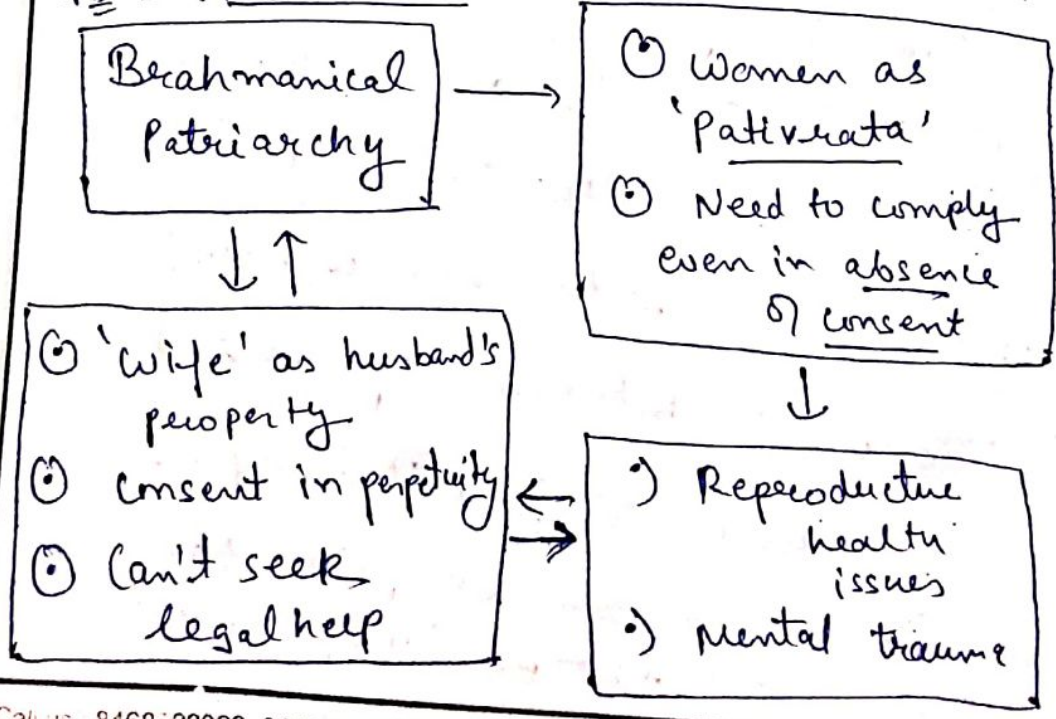 Brahmanical
Patriarchy
⊙ Women as
'Pativrata'
⊙ Need to comply
even in absence
of consent
⊙ 'wife' as husband's
property
⊙ consent in perpetuity
⊙ Can't seek
legal help
•) Reproductive
health
issues
•) Mental trauma